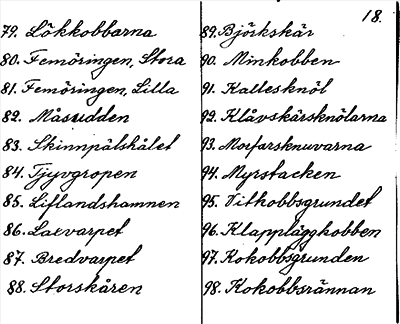 18.
79. Lökkobbarna
80. Femöringen, Stora
81. Femöringen, Lilla
82. Måsudden
83. Skinnpälshålet
84. Tjyvgropen
85. Liflandshamnen
86. Laxvarpet
87. Bredvarpet
88. Storskåren
89. Björkskär
90. Minkobben
91. Kallesknöl
92. Klåvskärsknölarna
93. Morfarsknuvarna
94. Myrstacken
95. Vitkobbsgrundet
96. Klappläggkobben
97. Kokobbsgrunden
98. Kokobbsrännan